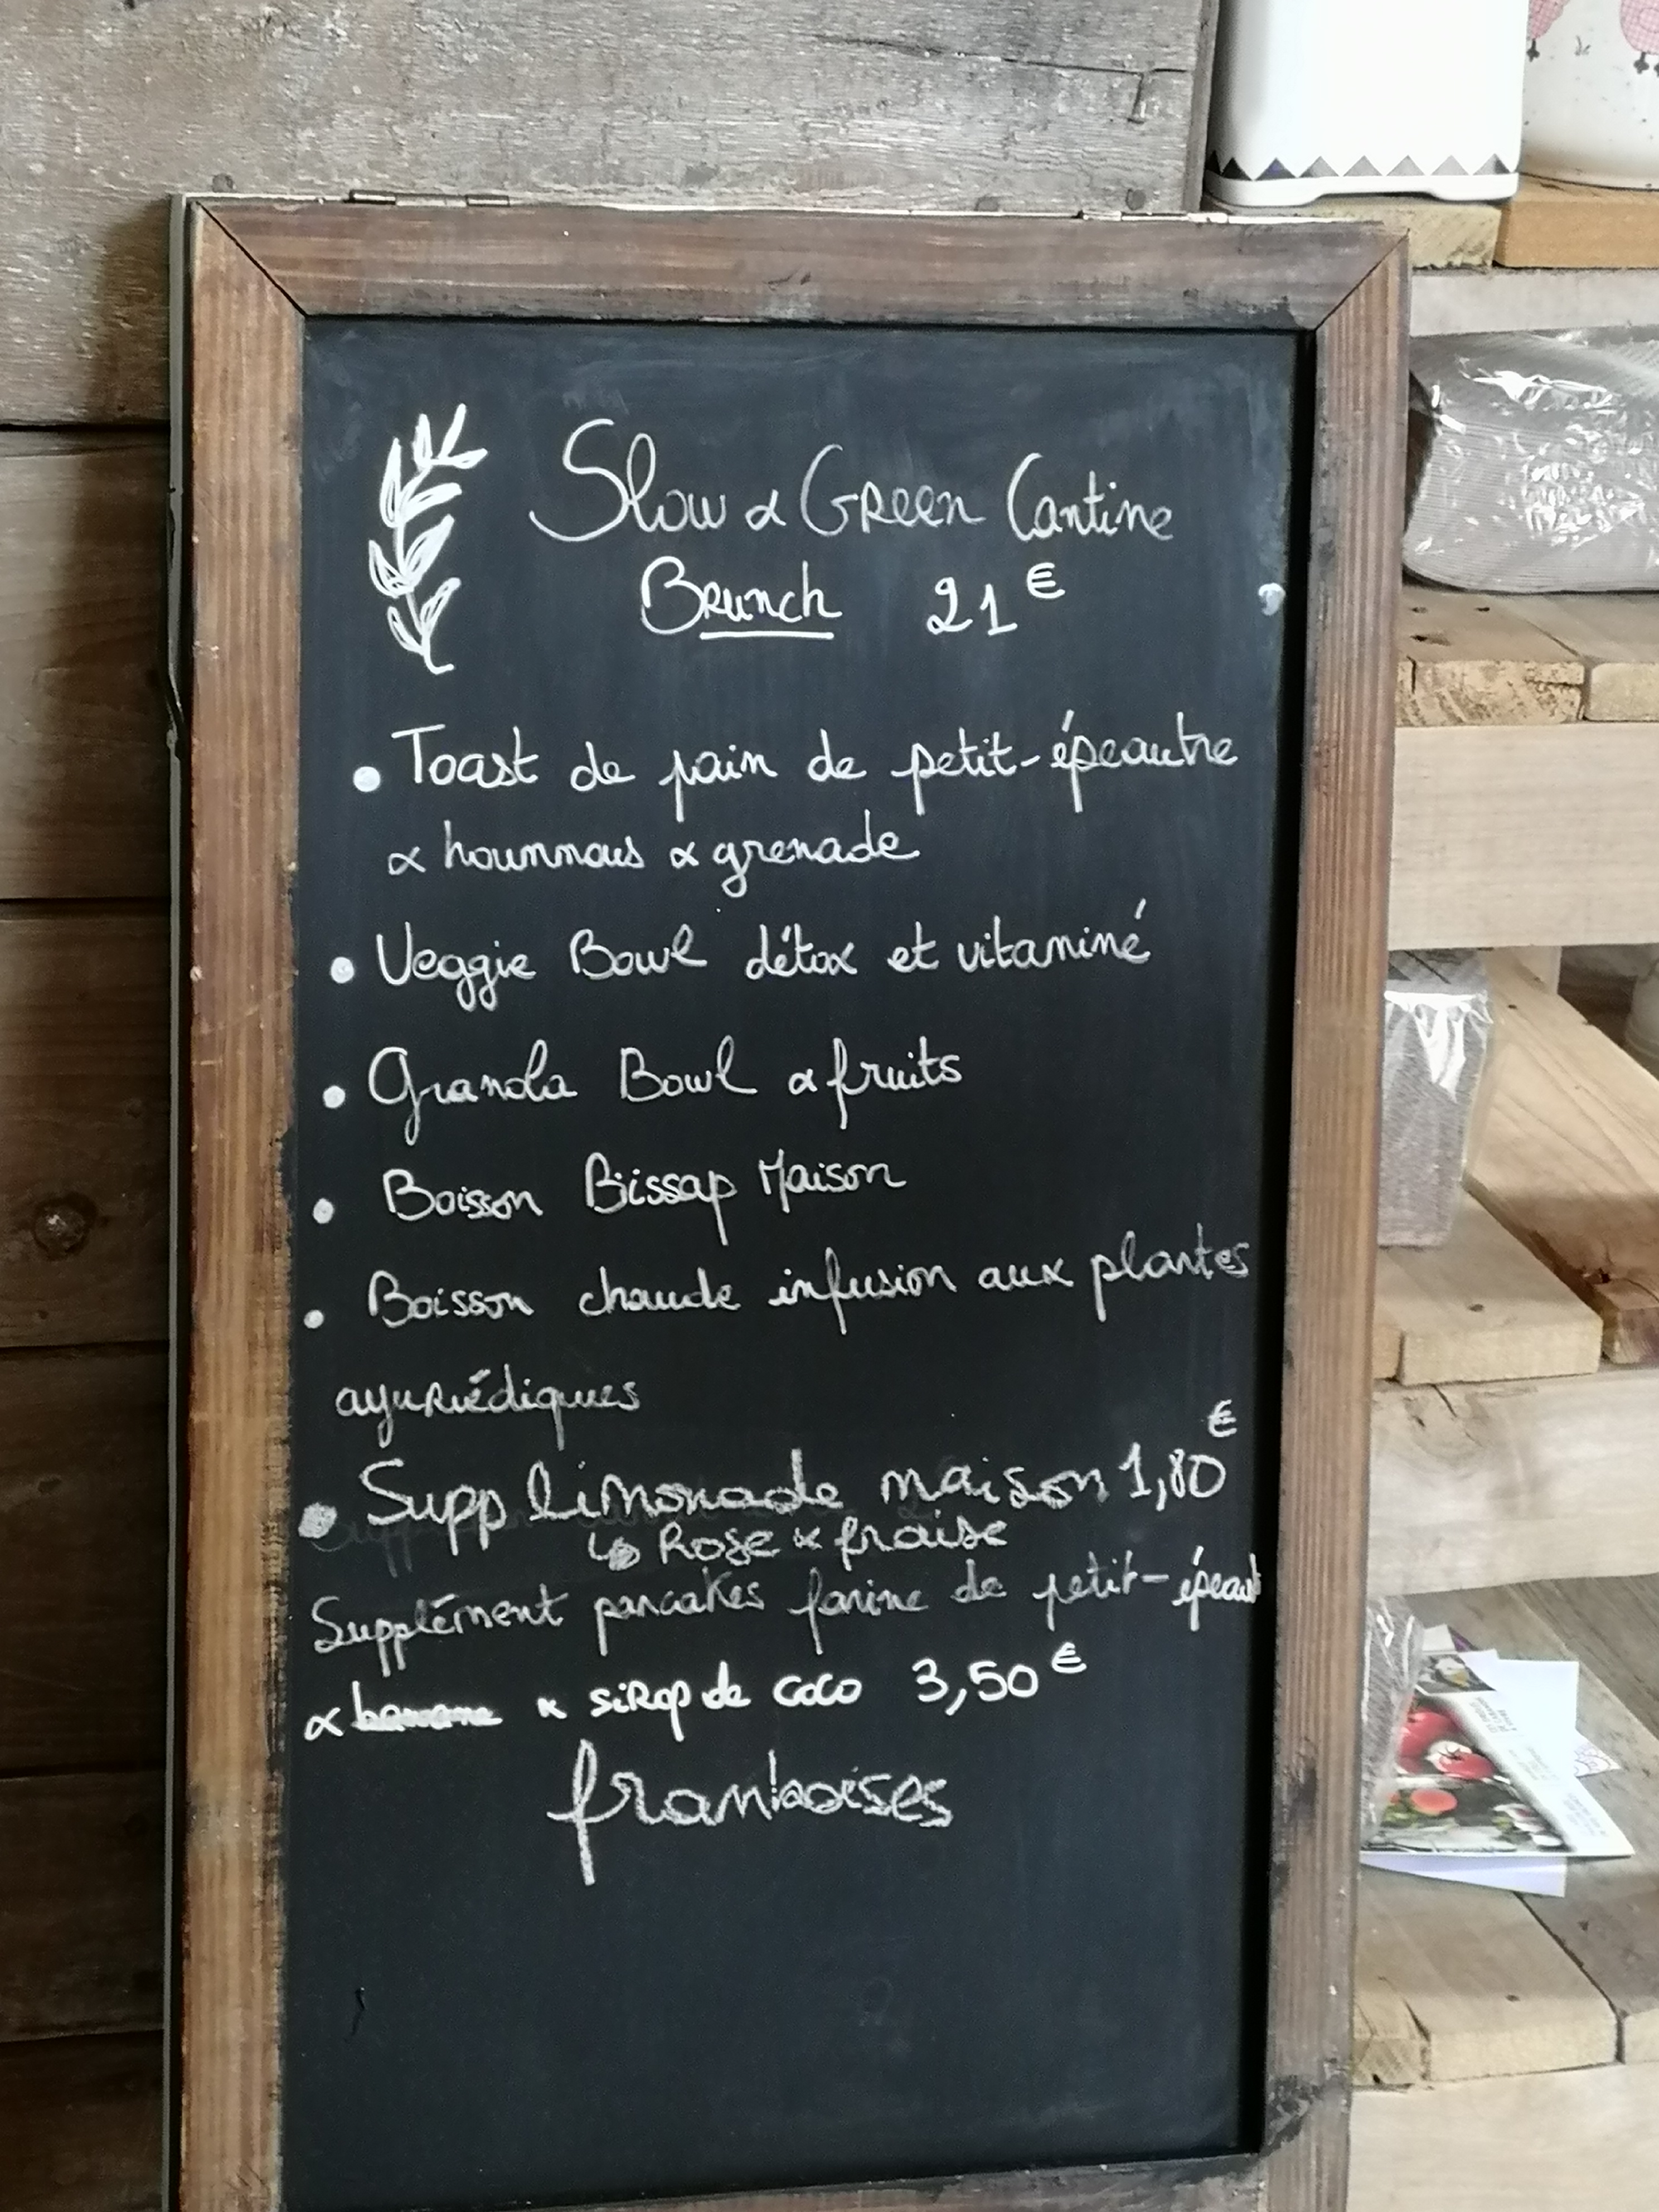 Slow & Green Cantine
Brunch 21€
• Toast de pain de petit-épeautre
& houmous & grenade
• Veggie Bowl détox et vitaminé
• Granola Bowl & fruits
• Boisson Bissap Maison
• Boisson chaude infusion aux plantes
ayurvédiques
• Supp limonade maison 1,80€
↳ Rose & fraise
Supplément pancakes farine de petit-épeaut
& banane & sirop de coco 3,50€
framboises